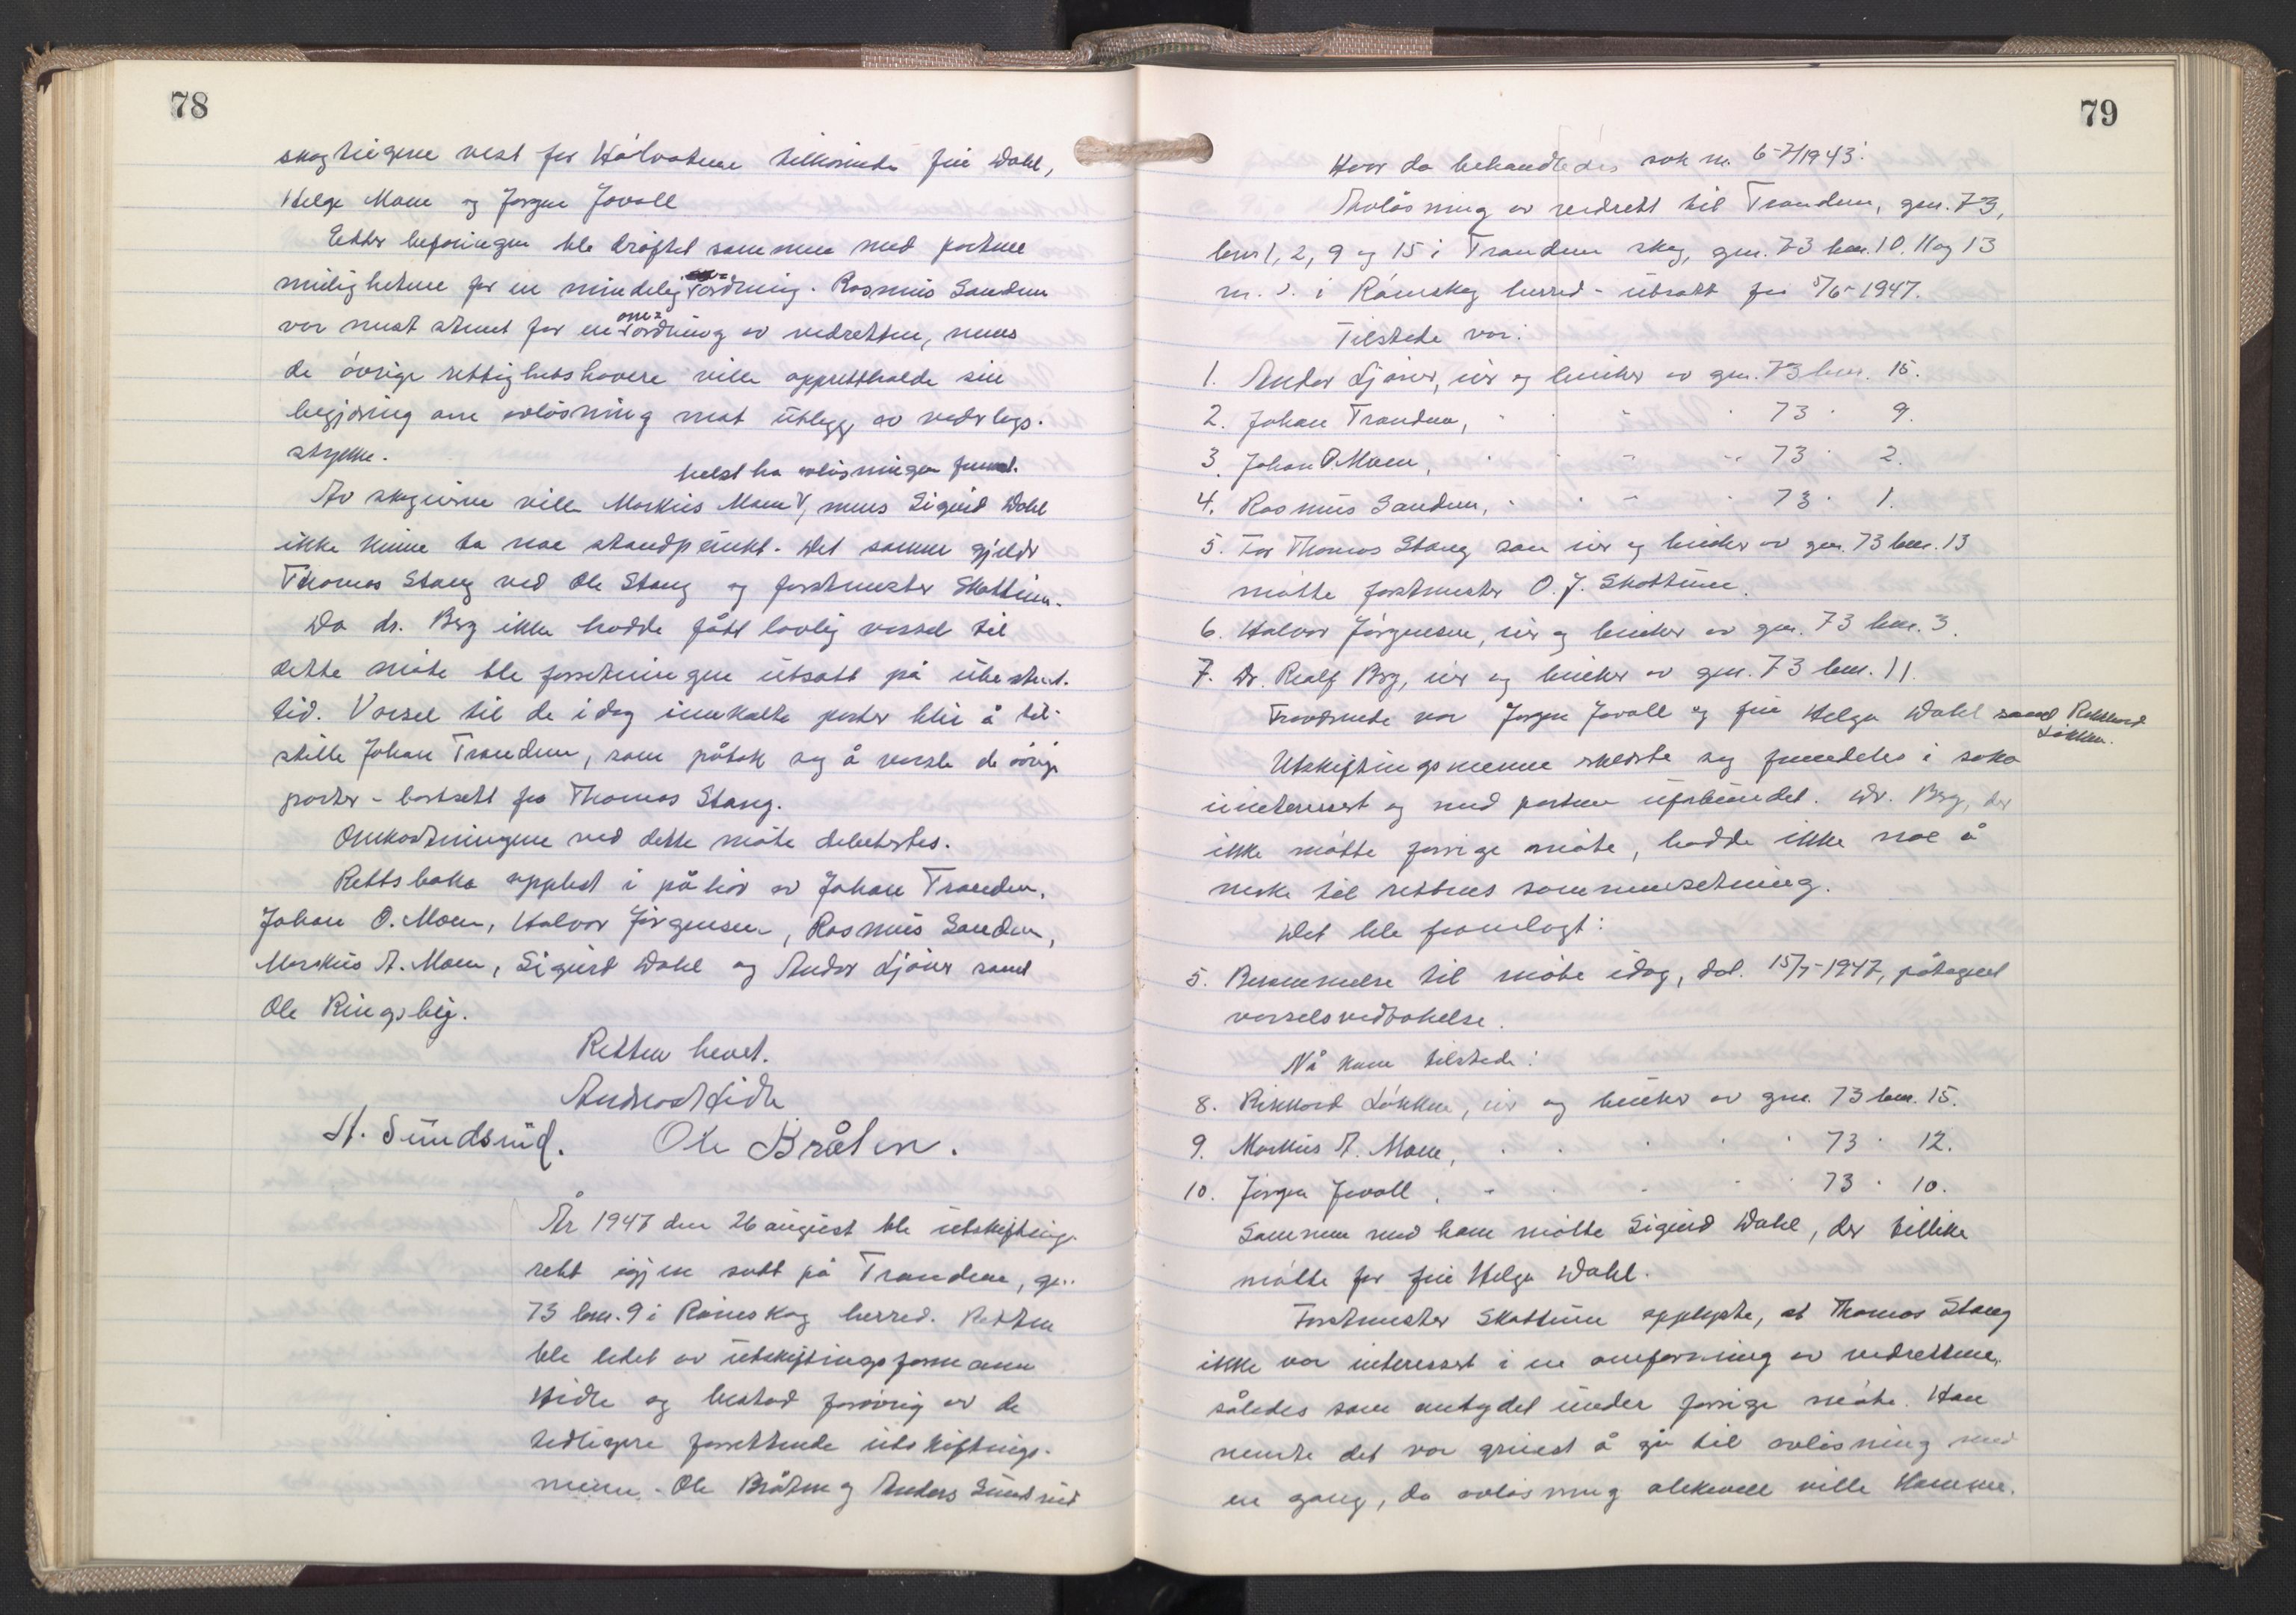 78
skogteigene vest for Hålvatnene tilhørende frue Dahl,
Helge Moen og Jørgen Jovall
Etter befaringen ble drøftet sammen med partene
mulighetene for en mindelig ordning. Rasmus Sandem
var mest stemt for en om=ordning av vedretten, mens
de övrige rettighetshavere ville opprettholde sin
begjæring om avløsning mot utlegg av vederlags-
stykke.
Av skogeierne ville Markus Moen helst ha avløsningen fremmet, mens Sigurd Dahl
ikke kunne ta noe standpunkt. Det samme gjelder
Thomas Stang ved Ole Stang og forstmester Skattum.
Da dr. Berg ikke hadde fått lovlig varsel til
dette møte ble forretningen utsatt på ubestemt
tid. Varsel til de idag innkalte parter blir å til-
stille Johan Trandem, som påtok seg å varsle de øvrige
parter - bortsett fra Thomas Stang.
Omkostningene ved dette møte debiteres.
Rettsboka opplest i påhør av Johan Trandem,
Johan O. Moen, Halvor Jørgensen, Rasmus Sandem,
Markus A. Moen, Sigurd Dahl og Andor Ljöner samt
Ole Ringsby.
Retten hevet.
Andreas Hidle
A. Sundsrud. Ole Bråten.
År 1947 den 26 august ble utskiftings-
rett igjen satt på Trandem, gn.
73 bnr. 9 i Rømskog herred. Retten
ble ledet av utskiftingsformann
Hidle og bestod forøvrig av de
tidligere forrettende utskiftnings-
menn - Ole Bråten og Anders Sundsrud
79
Hvor da behandledes sak nr. 6-7/1943:
Avløsning av vedrett til Trandem, gnr. 73,
bnr 1, 2, 9 og 15 i Trandem skog, gnr. 73 bnr. 10, 11 og 13
m. v. i Rømskog herred - utsatt fra 5/6-1947.
Tilstede var:
1. Andor Ljöner, eier og bruker av gnr. 73 bnr. 15.
2. Johan Trandem, " " " " 73 " 9.
3. Johan O. Moen, " " " " 73 " 2.
4. Rasmus Sandem, " " " " 73 " 1.
5. For Thomas Stang som eier og bruker av gnr. 73 bnr. 13
møtte forstmester O. J. Skattum.
6. Halvor Jørgensen, eier og bruker av gnr. 73 bnr. 3.
7. Dr. Rralf Berg, eier og bruker av gnr. 73 bnr. 11.
Fraværende var Jørgen Jovall og frue Helga Dahl samt Rikkard
Løkken.
Utskiftingsmennene erklærte seg fremdeles i saka
uinteressert og med partene uforbundet. Dr. Berg, der
ikke møtte forrige møte, hadde ikke noe å
merke til rettens sammensetning.
Det ble framlagt:
5. Berammelse til møte idag, dat. 15/7-1947, påtegnet
varselsvedtakelse.
Nå kom tilstede:
8. Rikkard Løkken, eier og bruker av gnr. 73 bnr. 15.
9. Markus A. Moen, " " " " 73 " 12.
10. Jørgen Jovall, " " " " 73 " 10.
Sammen med ham møtte Sigurd Dahl, der tillike
møtte for frue Helga Dahl.
Forstmester Skattum opplyste, at Thomas Stang
ikke var interessert i en omforming av vedrettene,
således som antydet under forrige møte. Han
mente det var greiest å gå til avløsning med
en gang, da avløsning allikevell ville komme.